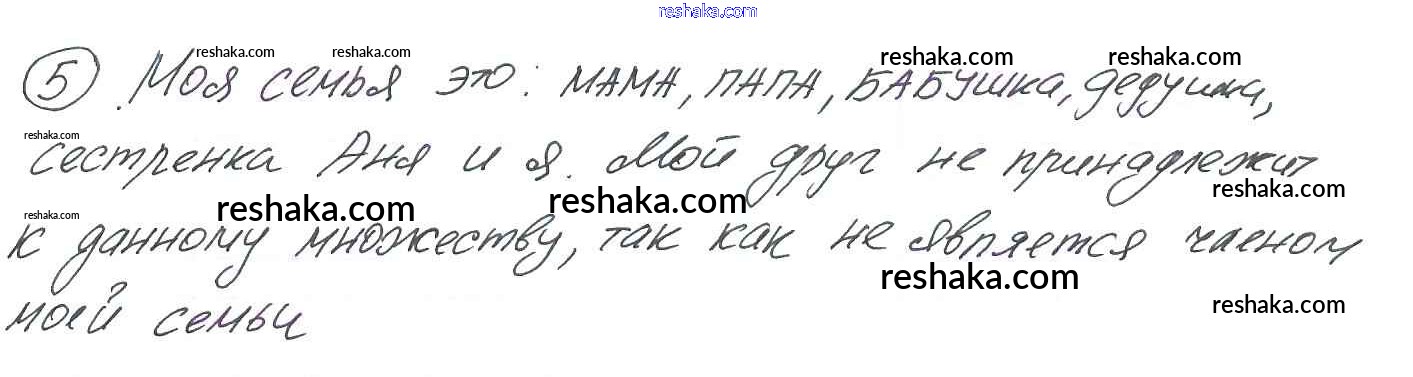 reshaka.com
reshaka.com reshaka.com reshaka.com reshaka.com
5 Моя семья это: МАМА, ПАПА, БАБУШКА, дедушка,
reshaka.com
сестренка Аня и я. Мой друг не принадлежит
reshaka.com reshaka.com reshaka.com reshaka.com
к данному множеству, так как не является членом
reshaka.com reshaka.com
моей семьи